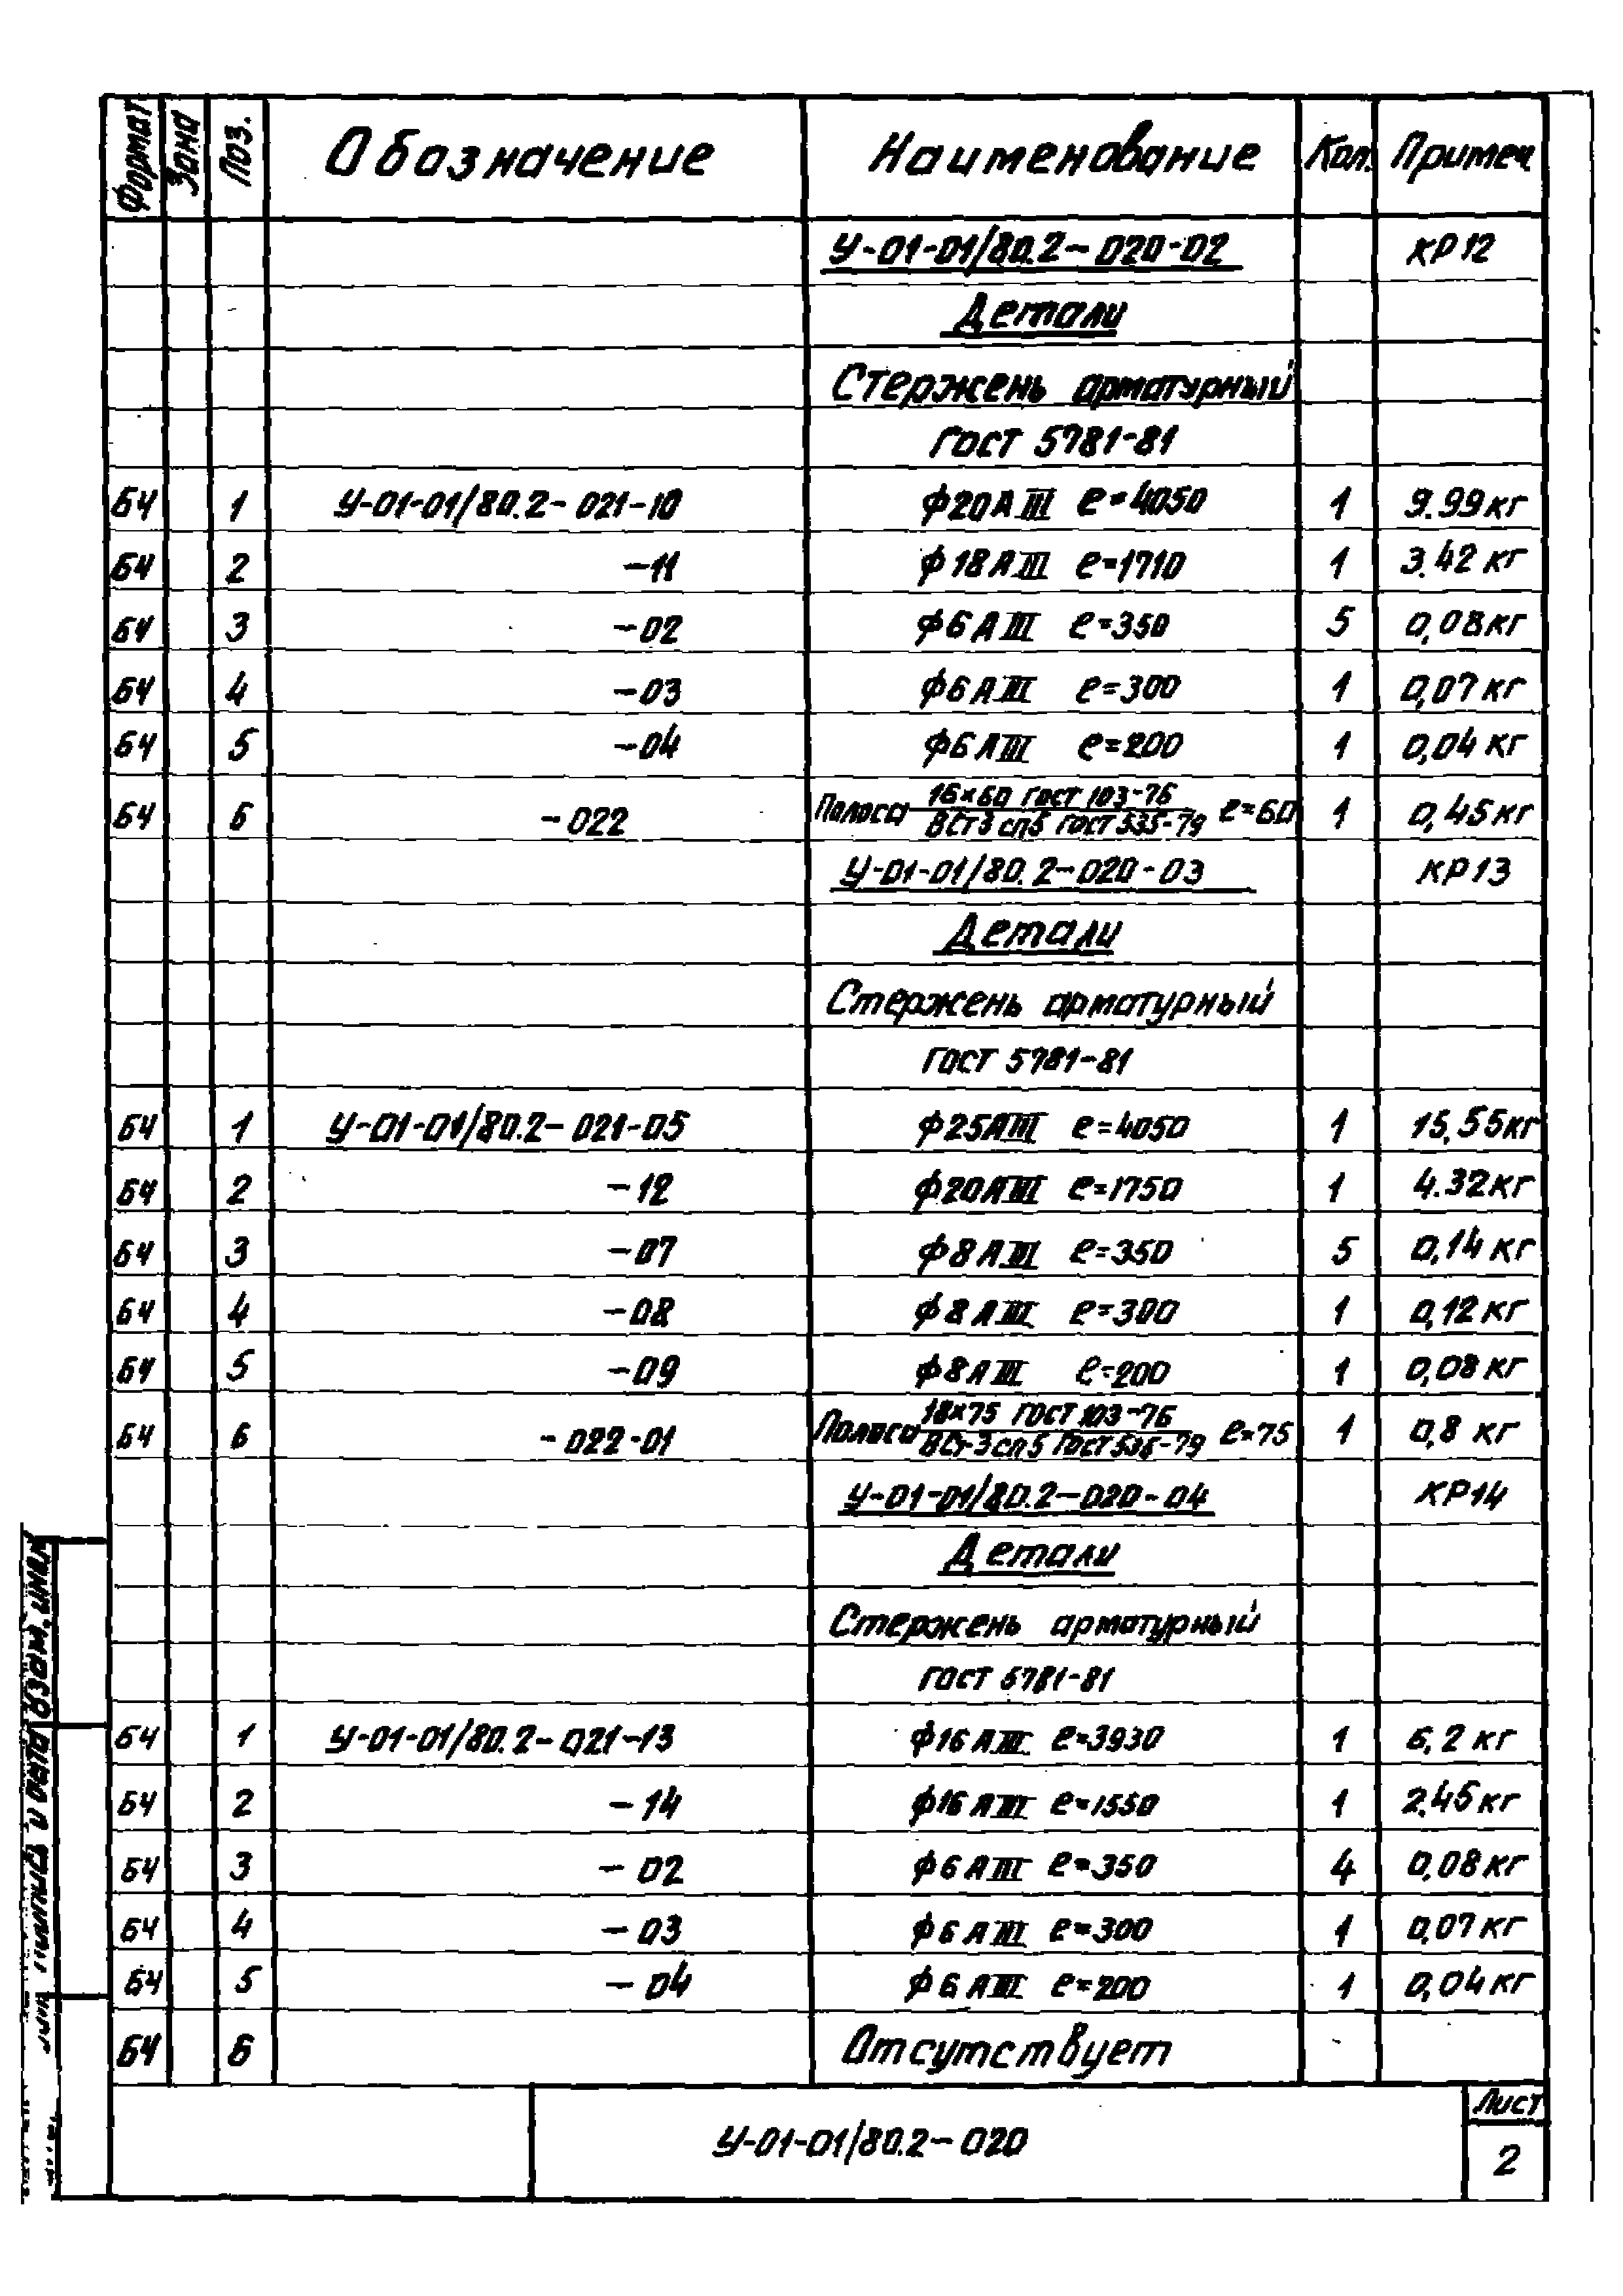 Формат Зона Поз. Обозначение Наименование Кол. Примеч
У-01-01/80.2-020-02 КР12
Детали
Стержень арматурный
ГОСТ 5781-81
БЧ 1 У-01-01/80.2-021-10 Ф20АIII ℓ=4050 1 9.99кг
БЧ 2 -11 Ф18АIII ℓ=1710 1 3.42 кг
БЧ 3 -02 Ф6АIII ℓ=350 5 0,08кг
БЧ 4 -03 Ф6АIII ℓ=300 1 0,07кг
БЧ 5 -04 Ф6АIII ℓ=200 1 0,04 кг
БЧ 6 -022 Полоса 16×60 ГОСТ 103-76 / ВСт3сп5 ГОСТ 535-79 ℓ=60 1 0,45кг
У-01-01/80.2-020-03 КР13
Детали
Стержень арматурный
ГОСТ 5781-81
БЧ 1 У-01-01/80.2-021-05 Ф25АIII ℓ=4050 1 15,55кг
БЧ 2 -12 Ф20АIII ℓ=1750 1 4.32кг
БЧ 3 -07 Ф8АIII ℓ=350 5 0,14кг
БЧ 4 -08 Ф8АIII ℓ=300 1 0,12кг
БЧ 5 -09 Ф8АIII ℓ=200 1 0,08кг
БЧ 6 -022-01 Полоса 18×75 ГОСТ 103-76 / ВСт3сп5 ГОСТ 535-79 ℓ=75 1 0,8 кг
У-01-01/80.2-020-04 КР14
Детали
Стержень арматурный
ГОСТ 5781-81
БЧ 1 У-01-01/80.2-021-13 Ф16АIII ℓ=3930 1 6,2 кг
БЧ 2 -14 Ф16АIII ℓ=1550 1 2.45кг
БЧ 3 -02 Ф6АIII ℓ=350 4 0,08кг
БЧ 4 -03 Ф6АIII ℓ=300 1 0,07кг
БЧ 5 -04 Ф6АIII ℓ=200 1 0,04кг
БЧ 6 Отсутствует
У-01-01/80.2-020
Лист
2
Взам. инв.
и дата